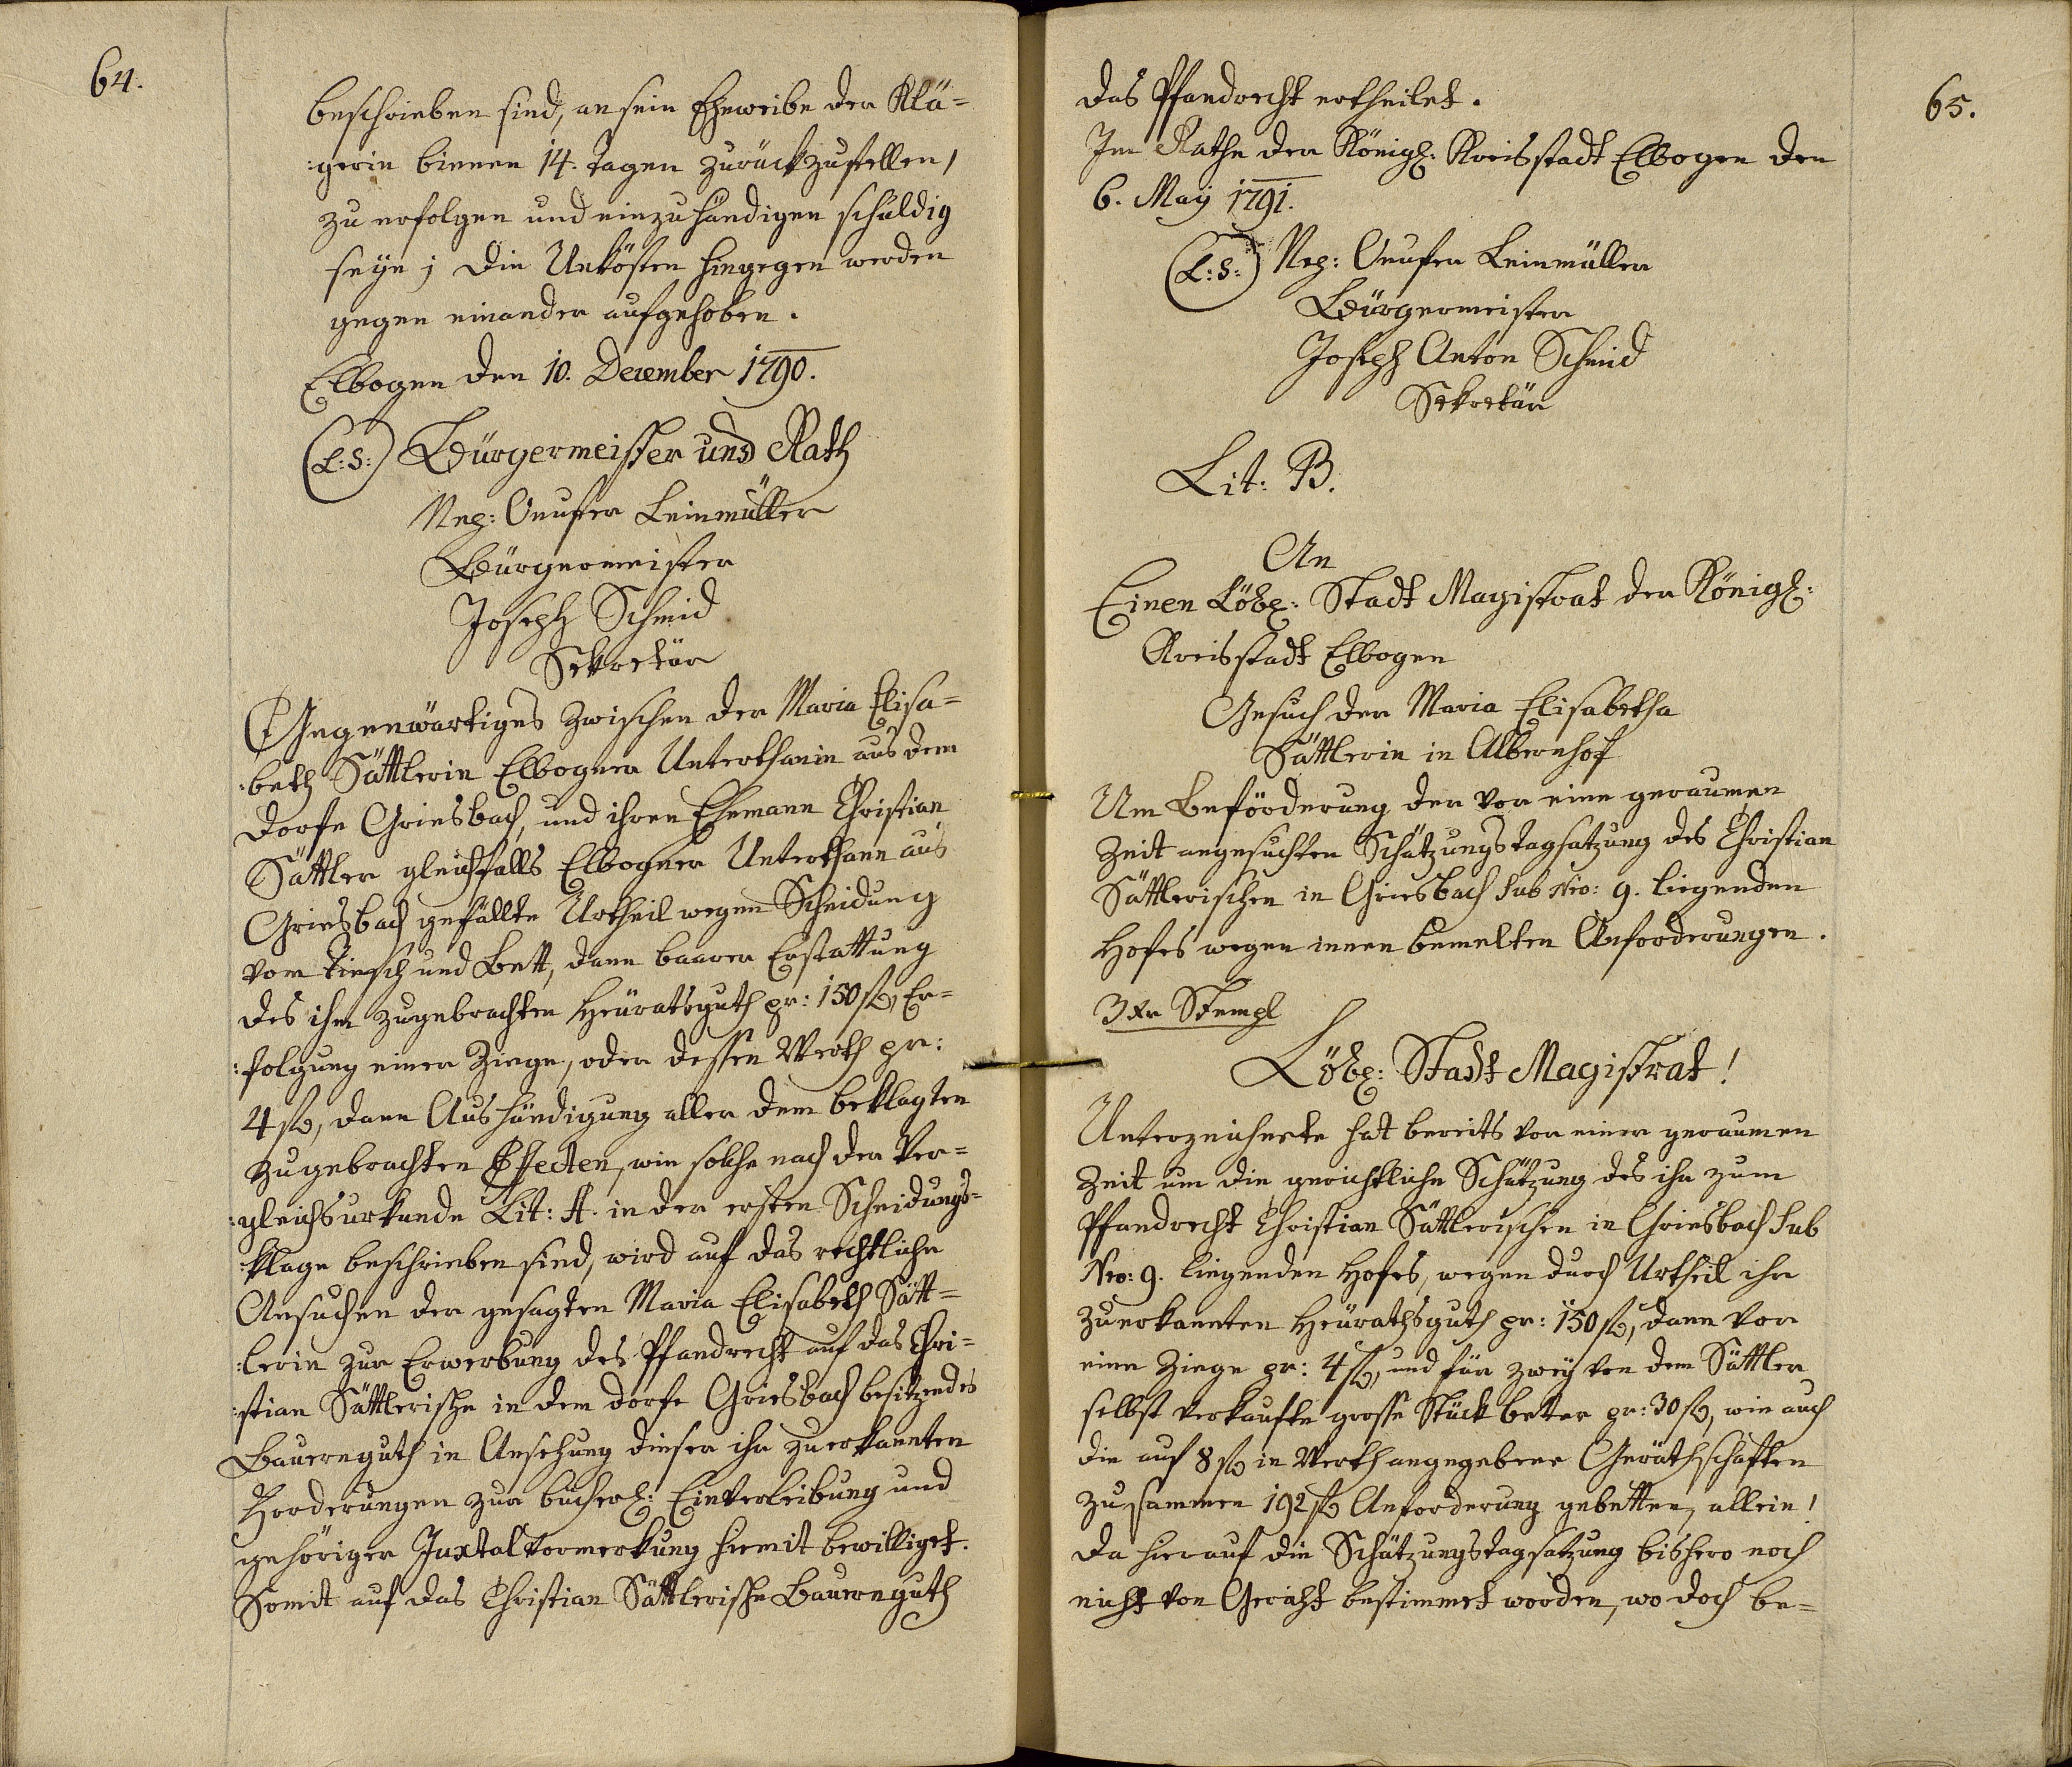 64.
beschrieben sind, an sein Eheweibe der Klä=
:gerin binnen 14. Tagen zurückzustellen,
zu erfolgen und einzuhändigen schuldig
seye; die Unkösten hingegen werden
gegen einander aufgehoben.
Elbogen den 10. December 1790.
(L:S:) Bürgermeister und Rath
Nep: Onufer Leinmüller
Bürgermeister
Joseph Schmid
Sekretär
Gegenwärtiges zwischen der Maria Elisa=
:beth Sättlerin Elbogner Unterthanin aus dem
Dorfe Griesbach, und ihren Ehemann Christian
Sättler gleichfalls Elbogner Unterthann aus
Griesbach gefällte Urtheil wegen Scheidung
vom Tiesch und Bett, dann baarer Erstattung
des ihm zugebrachten Heüratsguth pr: 150 f, Er=
:folgung einer Ziege, oder dessen Werth pr:
4 f, dann Aushändigung aller dem beklagten
zugebrachten Effecten, wie solche nach der Ver=
:gleichsurkunde Lit: A. in der ersten Scheidungs=
:klage beschrieben sind, wird auf das rechtliche
Ansuchen der gesagten Maria Elisabeth Sätt=
:lerin zur Erwerbung des Pfandrecht auf das Chri=
:stian Sättlerische in dem Dorfe Griesbach besitzendes
Bauernguth in Ansehung dieser ihr zuerkannten
Forderungen zur bücherl: Einverleibung und
gehöriger Juxtalvormerkung hiemit bewilliget.
Somit auf das Christian Sättlerische Bauernguth
65.
das Pfandrecht ertheilet.
Im Rathe der Königl: Kreisstadt Elbogen den
6. May 1791.
(L:S:) Nep: Onufer Leinmüller
Bürgermeister
Joseph Anton Schmid
Sekretär
Lit: B.
An
Einen Löbl: Stadt Magistrat der Königl:
Kreisstadt Elbogen
Gesuch der Maria Elisabetha
Sättlerin in Albernhof
Um Beförderung der vor eine geraumen
Zeit angesuchten Schätzungstagsatzung des Christian
Sättlerischen in Griesbach sub Nro: 9. liegenden
Hofes wegen innen bemelten Anforderungen.
3 Xr Stempl
Löbl: Stadt Magistrat!
Unterzeichnete hat bereits vor einer geraumen
Zeit um die gerichtliche Schätzung des ihr zum
Pfandrecht Christian Sättlerischen in Griesbach sub
Nro: 9. liegenden Hofes, wegen durch Urtheil ihr
zuerkannten Heürathsguth pr: 150 f, dann vor
eine Ziege pr: 4 f, und für zwey von dem Sättler
selbst verkaufte grosse Stück better pr: 30 f, wie auch
die auf 8 f in Werth angegebene Geräthschaften
zusammen 192 f Anforderung gebetten, allein!
da hierauf die Schätzungstagsatzung bishero noch
nicht von Gericht bestimmet worden, wo doch be=